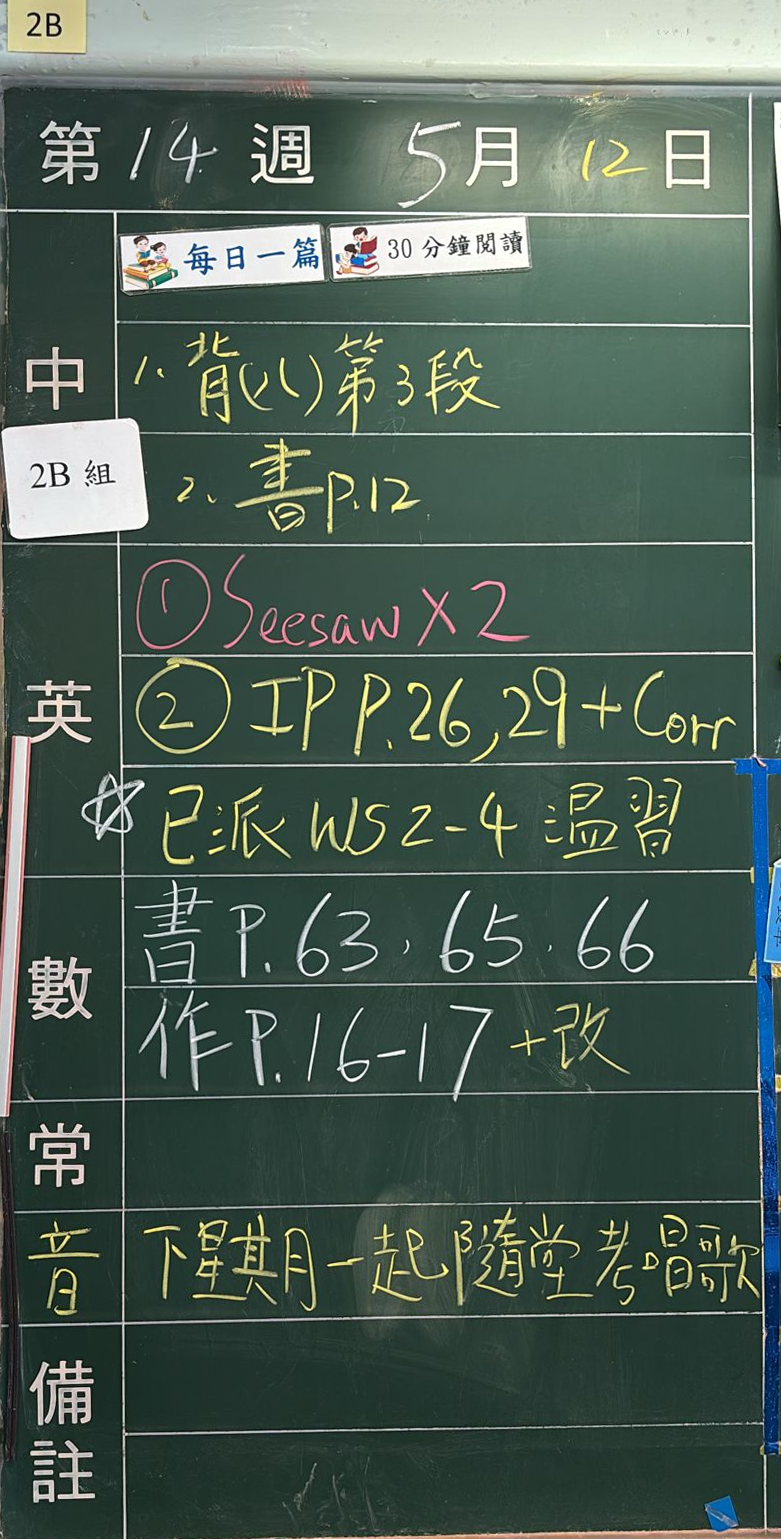 2B
第14週 5月12日
每日一篇 30分鐘閱讀
中 1. 背(八)第3段
2B 組 2. 書P.12
①Seesaw X 2
英 ② IP P.26,29+Corr
☆ 已派 WS 2-4 温習
書 P.63, 65, 66
數 作 P.16-17 +改
常
音 下星期一起隨堂考唱歌
備註